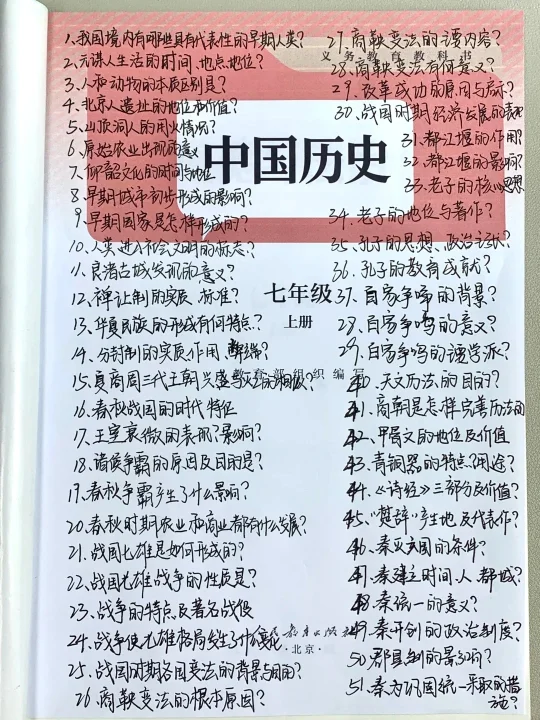 1、我国境内有哪些具有代表性的早期人类?
2、元谋人生活的时间、地点、地位?
3、人和动物的本质区别是?
4、北京人遗址的地位和价值?
5、山顶洞人的用火情况?
6、原始农业出现的意义
7、仰韶文化的时间与地位
8、早期城市初步形成的影响?
9、早期国家是怎样形成的?
10、人类进入社会文明的标志?
11、良渚古城发现的意义?
12、禅让制的实质 标准?
13、华夏民族的形成有何特点?
14、分封制的实质作用、弊端?
15、夏商周三代王朝兴盛与灭亡的相似?
16、春秋战国的时代特征
17、王室衰微的表现?影响?
18、诸侯争霸的原因及目的是?
19、春秋争霸产生了什么影响?
20、春秋时期农业和商业都有什么发展?
21、战国七雄是如何形成的?
22、战国七雄战争的性质是?
23、战争的特点及著名战役
24、战争使七雄格局发生了什么变化
25、战国时期各国变法的背景与目的?
26、商鞅变法的根本原因?
义务教育教科书
中国历史
七年级
上册
教育部组织编写
人民教育出版社
·北京·
27、商鞅变法的主要内容?
28、商鞅变法有何意义?
29、改革成功的原因与启示?
30、战国时期经济发展的表现
31、都江堰的作用?
32、都江堰的影响?
33、老子的核心思想
34、老子的地位与著作?
35、孔子的思想、政治主张?
36、孔子的教育成就?
37、百家争鸣的背景?
28、百家争鸣的意义?
29、百家争鸣的诸学派?
40、天文历法的目的?
41、商朝是怎样完善历法的
42、甲骨文的地位及价值
43、青铜器的特点?用途?
44、《诗经》三部分及价值?
45、“楚辞”产生地及代表作?
46、秦灭六国的条件?
47、秦建立时间、人 都城?
48、秦统一的意义?
49、秦开创的政治制度?
50、郡县制的影响?
51、秦为巩固统一采取的措施?